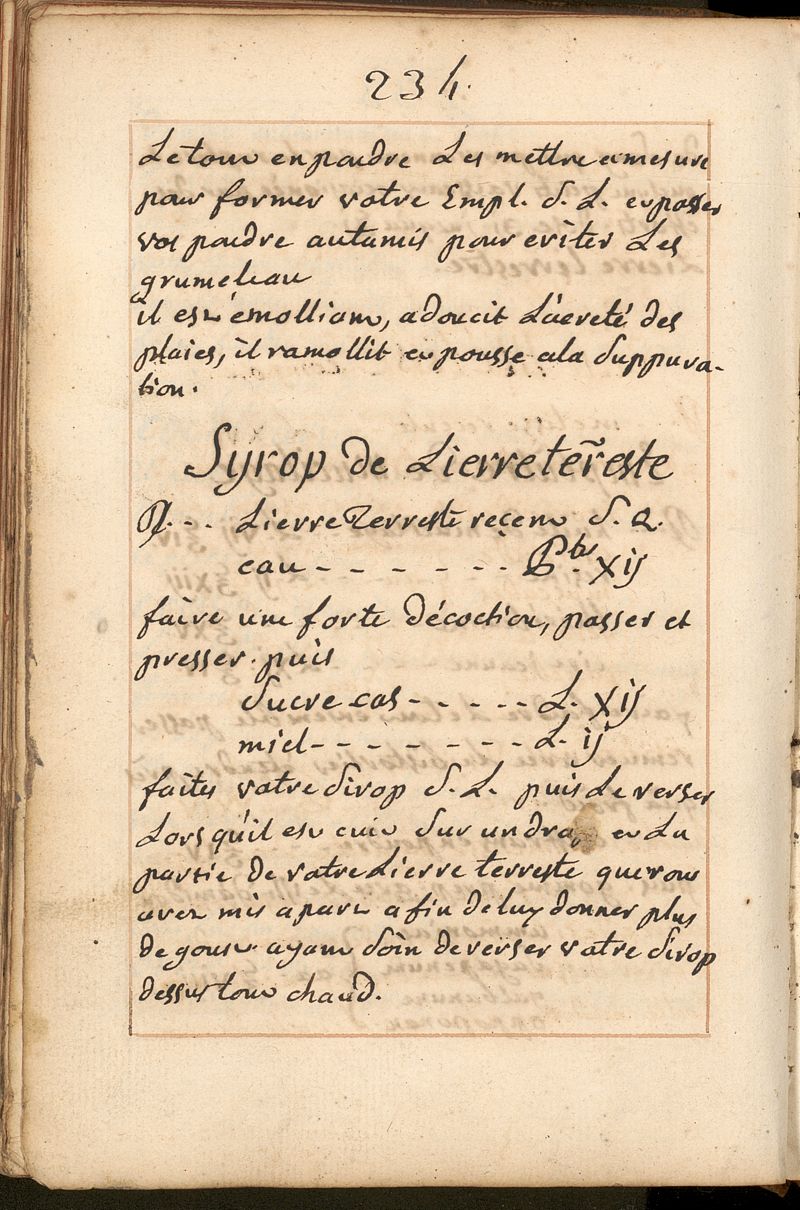 234.
Le tout en poudre Les mettre a mesure
pour former votre Empl. S. L. et passer
vos poudre au tamis pour eviter Les
grumeleau
il est émolliant, adoucit L'acreté des
plaies, il ramollit et pousse a la Suppura-
tion.
Syrop de Lierre terreste
℞. - - Lierre Terreste recent S. Q.
eau - - - - - - - lbs. Xij
faire une forte décoction, passer et
presser. puis
Sucre cas - - - - - L. Xij
miel - - - - - - - L. ij
faites votre Sirop S. L. puis Le verser
Lors qu'il est cuit Sur un drap et La
partie de votre Lierre terreste que vous
avez mis a part a fin de luy donner plus
de goust ayant Soin de verser votre Sirop
dessus tout chaud.